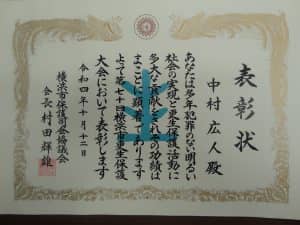 表彰状
中村広人殿
あなたは多年犯罪のない明るい
社会の実現と更生保護活動に
多大な貢献をされその功績は
まことに顕著であります
よって第七十回横浜市更生保護
大会において表彰します
令和四年十月十二日
横浜市保護司会協議会
会長村田輝雄